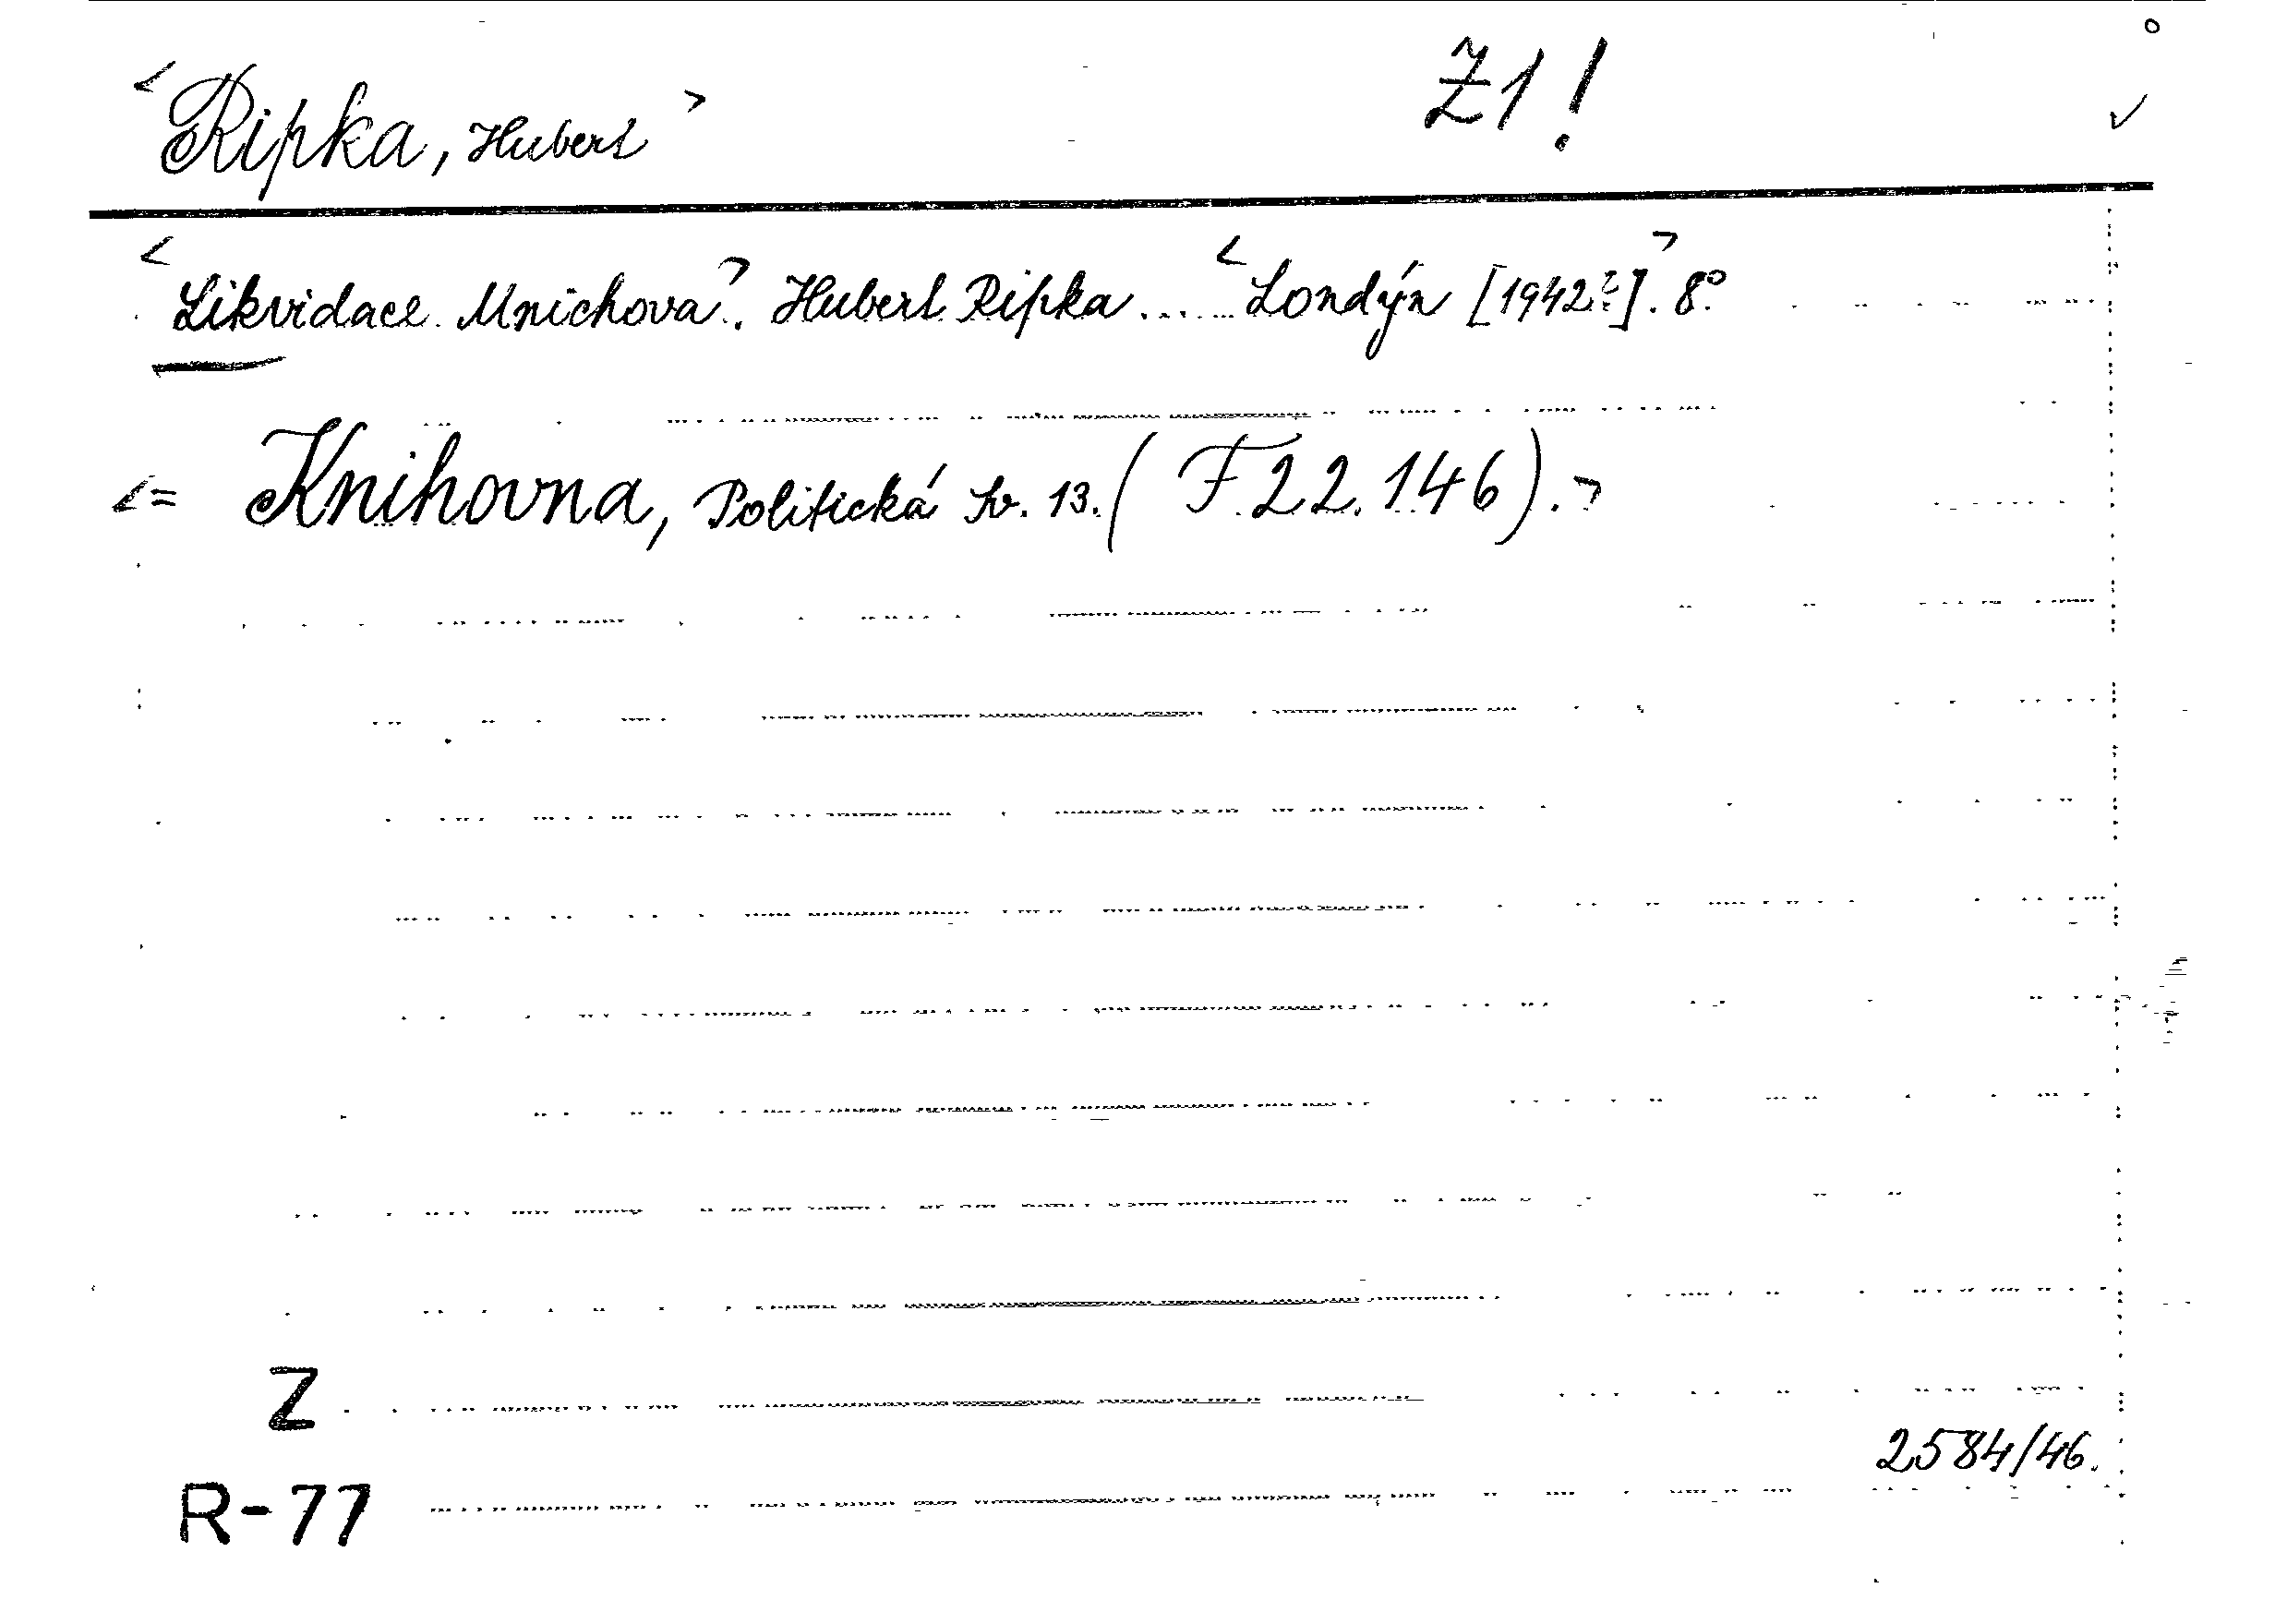 <Ripka, Hubert> Z1!
<Likvidace Mnichova>. Hubert Ripka ..... <Londýn [1942?]>. 8°.
<= Knihovna, Politická Sv. 13. (F 22.146).>
Z
2584/46.
R-77